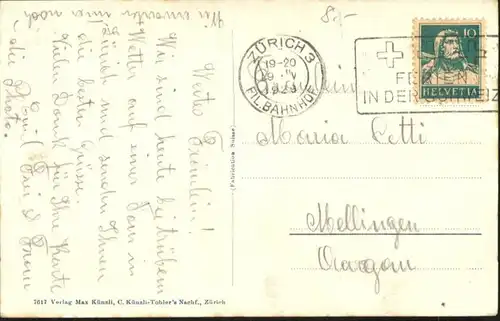 Wir erwarten
uns mir
8.-
Wertes Fräulein!
Wir sind heute bei trübem
Wetter auf einer Tour in
Zürich und senden Ihnen
die besten Grüsse.
Vielen Dank für Ihre Karte
Emil Frei & Frau
die Photo.
(Fabrication Suisse)
ZÜRICH 3
19-20
1929
FIL. BAHNHOF
FERIEN
IN DER SCHWEIZ
10
HELVETIA
Maria Letti
Mellingen
Aargau
7617 Verlag Max Künzli, C. Künzli-Tobler's Nachf., Zürich